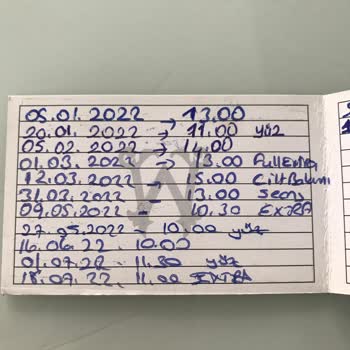 05.01.2022 → 13.00
20.01.2022 → 11.00 yüz
05.02.2022 → 14.00
01.03.2022 → 13.00
12.03.2022 → 15.00 Cilt Bakımı
31.03.2022 - 13.00 Seans
09.05.2022 - 10.30 EXTRA
27.05.2022 - 10.00 yüz
16.06.22 - 10.00
01.07.22 - 11.30 yüz
18.07.22. 11.00 EXTRA